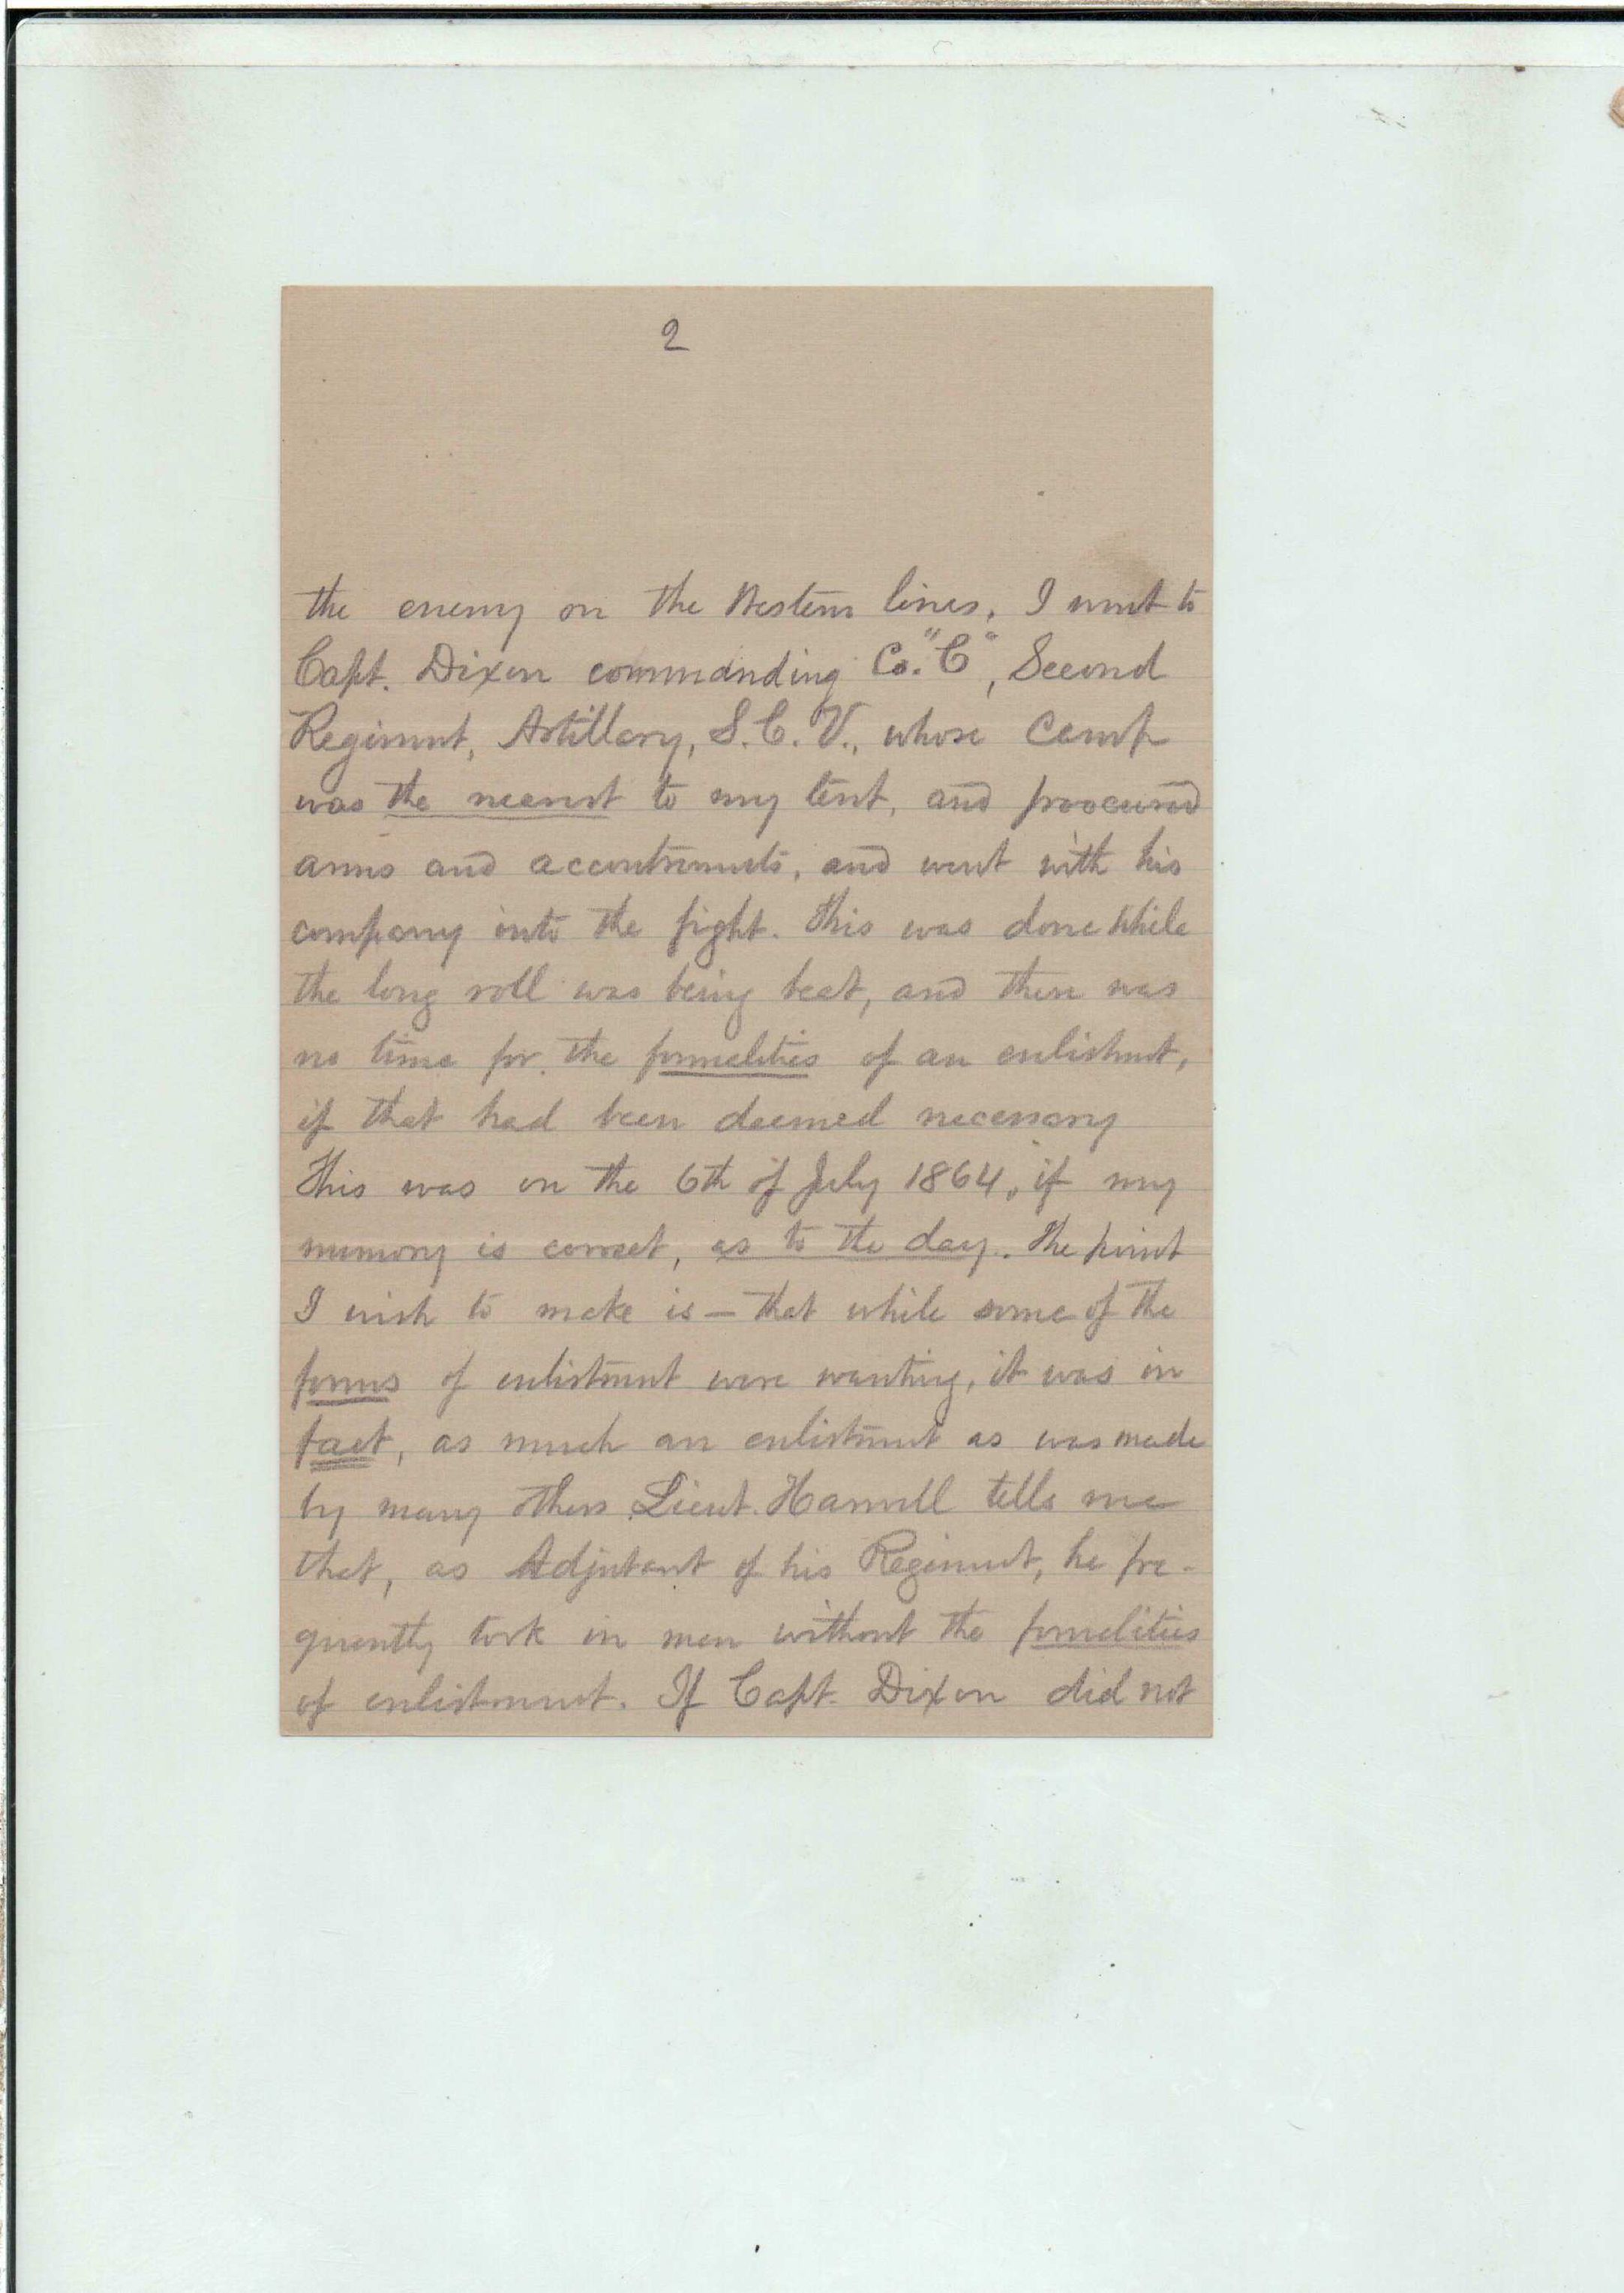 2
the enemy on the Western lines, I went to
Capt. Dixon commanding Co. "C", Second
Regiment, Artillery, S.C.V., whose Camp
was the nearest to my tent, and procured
arms and accoutrements, and went with his
company into the fight. This was done while
the long roll was being beat, and there was
no time for the formalities of an enlistment,
if that had been deemed necessary
This was on the 6th of July 1864, if my
memory is correct, as to the day. The point
I wish to make is — that while some of the
forms of enlistment were wanting, it was in
fact, as much an enlistment as was made
by many others. Lieut. tells me
that, as Adjutant of his Regiment, he fre-
quently took in men without the formalities
of enlistment. If Capt. Dixon did not